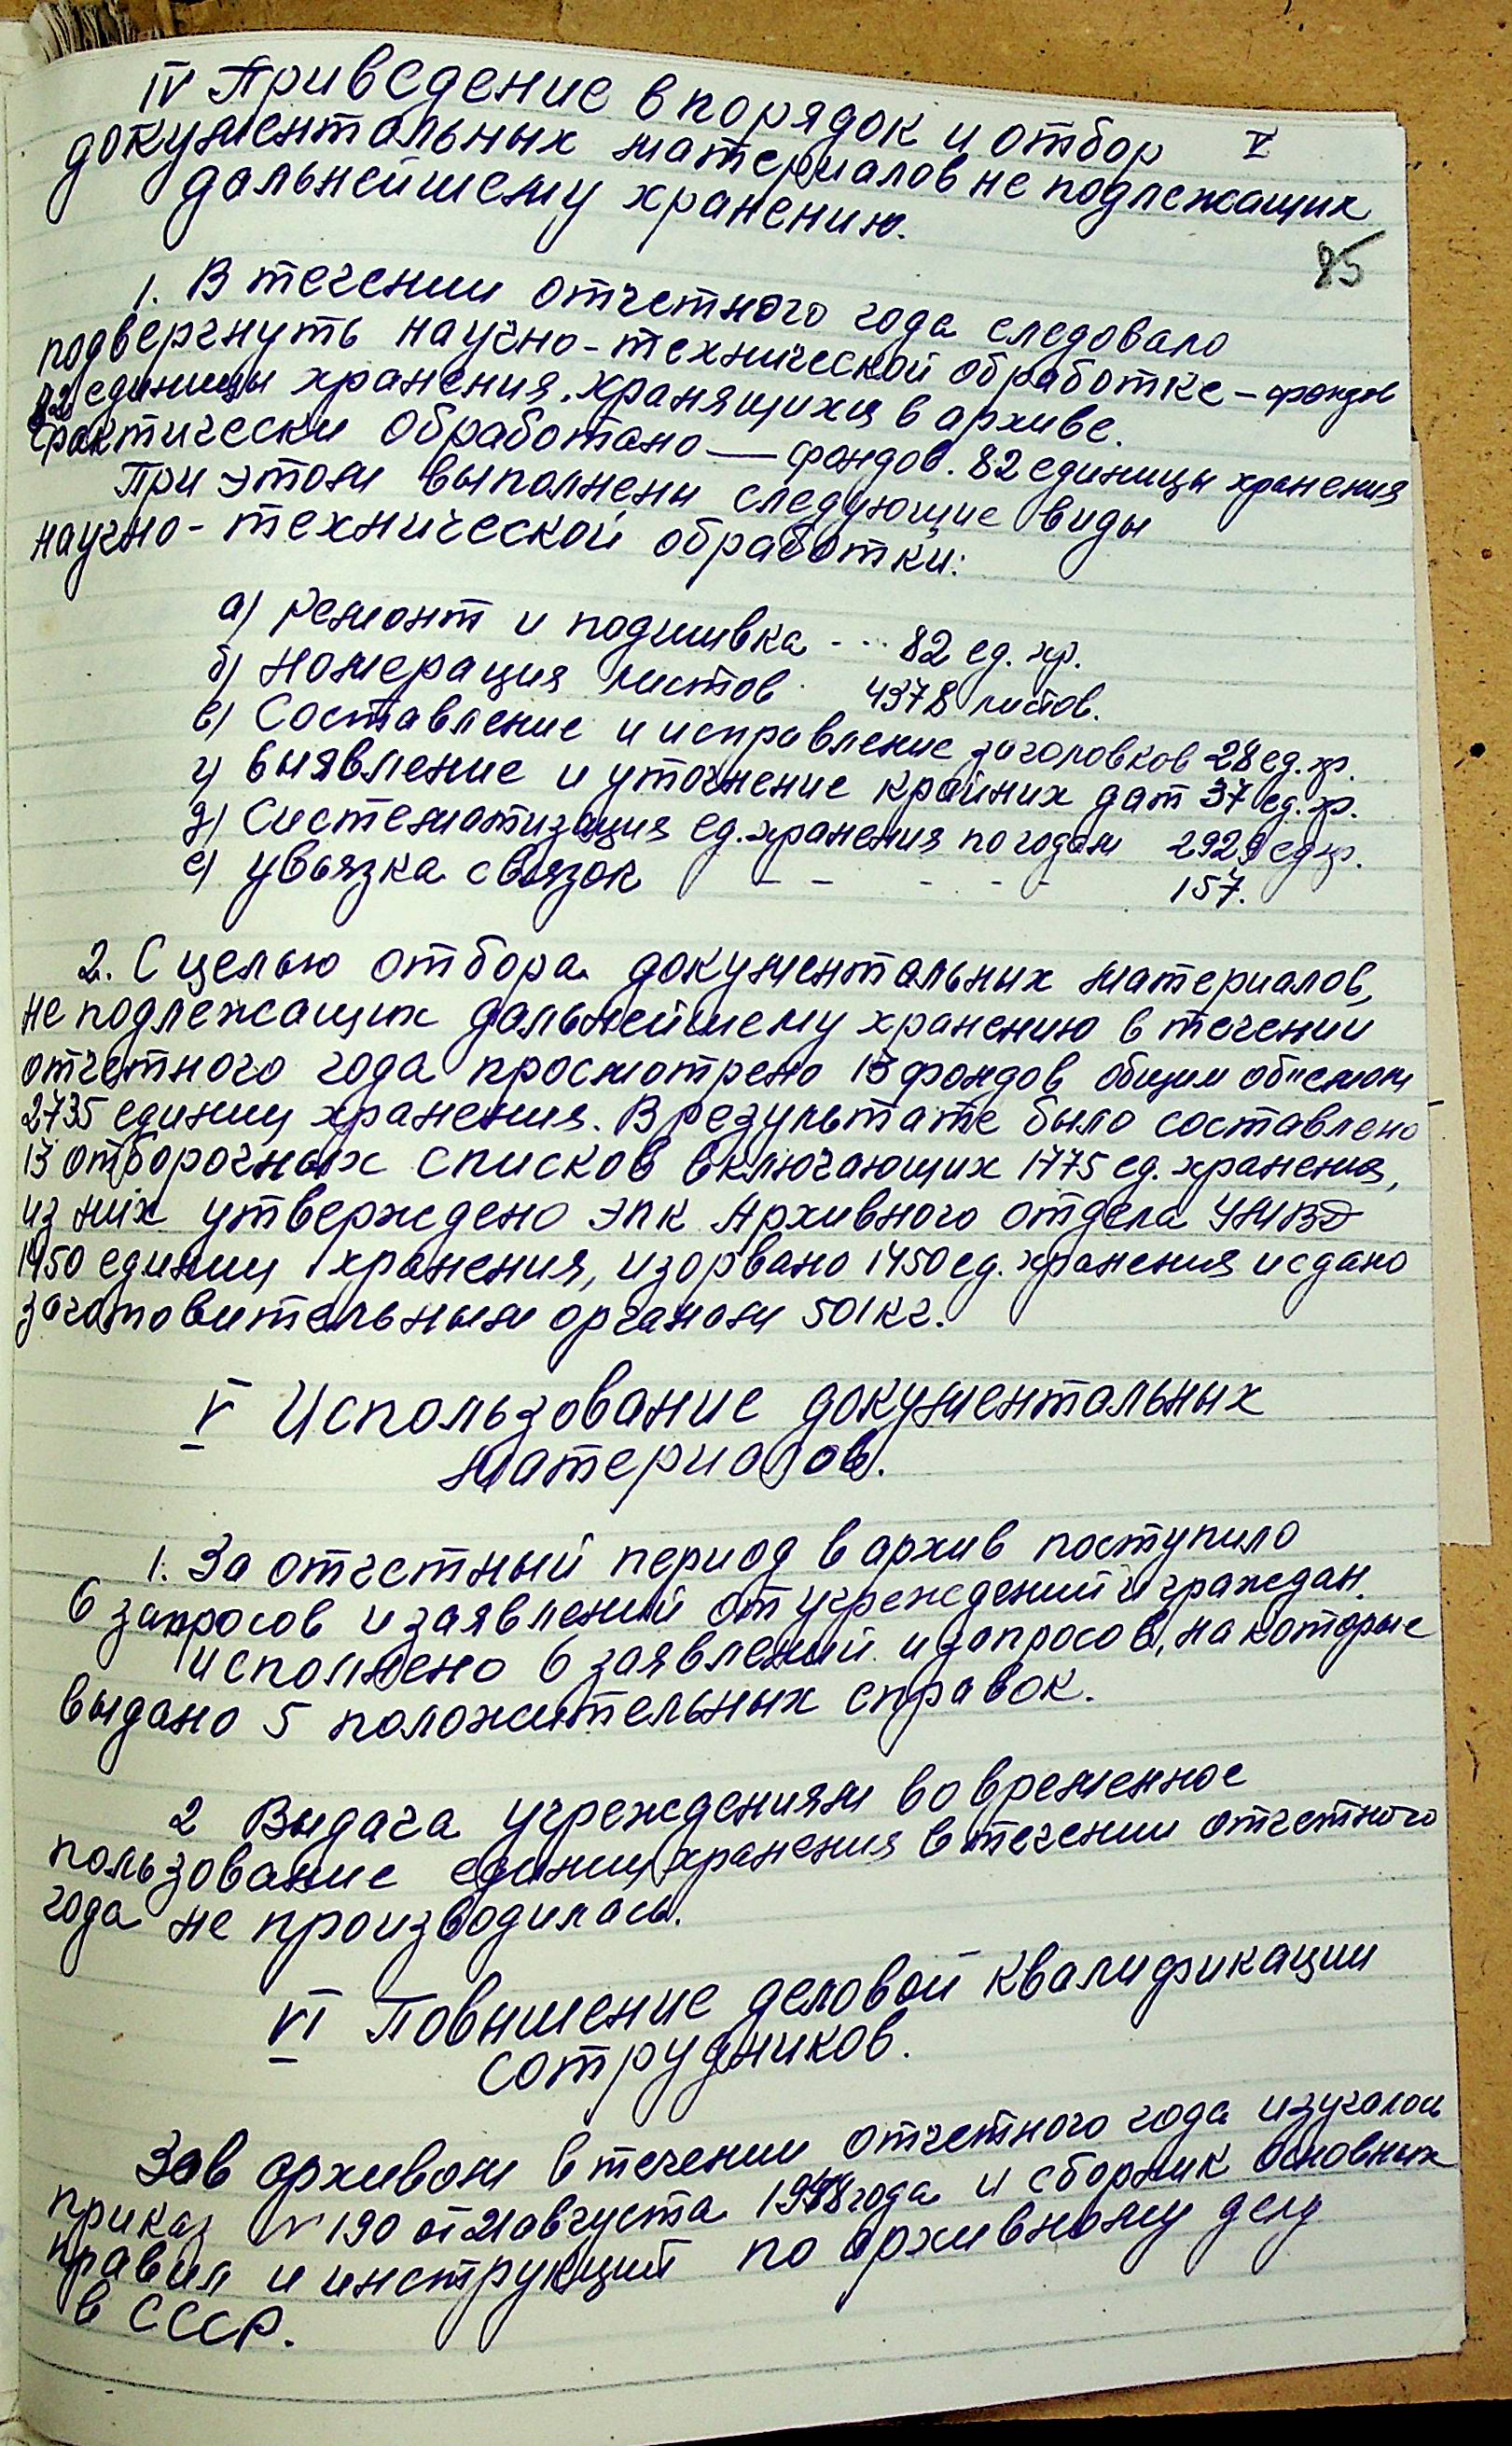 IV Приведение в порядок и отбор V
документальных материалов не подлежащих
дальнейшему хранению.
85
1. В течении отчетного года следовало
подвергнуть научно-технической обработке – фондов
82 единицы хранения, хранящихся в архиве.
Фактически обработано — фондов. 82 единицы хранения
При этом выполнены следующие виды
научно-технической обработки:
а) ремонт и подшивка - - - 82 ед. хр.
б) номерация листов 4978 листов.
в) Составление и исправление заголовков 28 ед. хр.
г) выявление и уточнение крайних дат 37 ед. хр.
д) Систематизация ед. хранения по годам 2929 ед хр.
е) увьязка свьязок - - - - - 157.
2. С целью отбора документальных материалов,
не подлежащих дальнейшему хранению в течении
отчетного года просмотрено 13 фондов общим объемом
2735 единиц хранения. В результате было составлено
13 отборочных списков включающих 1775 ед. хранения,
из них утверждено ЭПК Архивного отдела УМВД
1450 единиц хранения, изорвано 1450 ед. хранения и сдано
заготовительным органам 501 кг.
V Использование документальных
материалов.
1. За отчетный период в архив поступило
6 запросов и заявлений от учреждений и граждан.
исполнено 6 заявлений и запросов, на которые
выдано 5 положительных справок.
2 Выдача учреждениям во временное
пользование единиц хранения в течении отчетного
года не производилась.
VI Повышение деловой квалификации
сотрудников.
Зав архивом в течении отчетного года изучался
приказ N 190 от 21 августа 1948 года и сборник основных
правил и инструкций по архивному делу
в СССР.